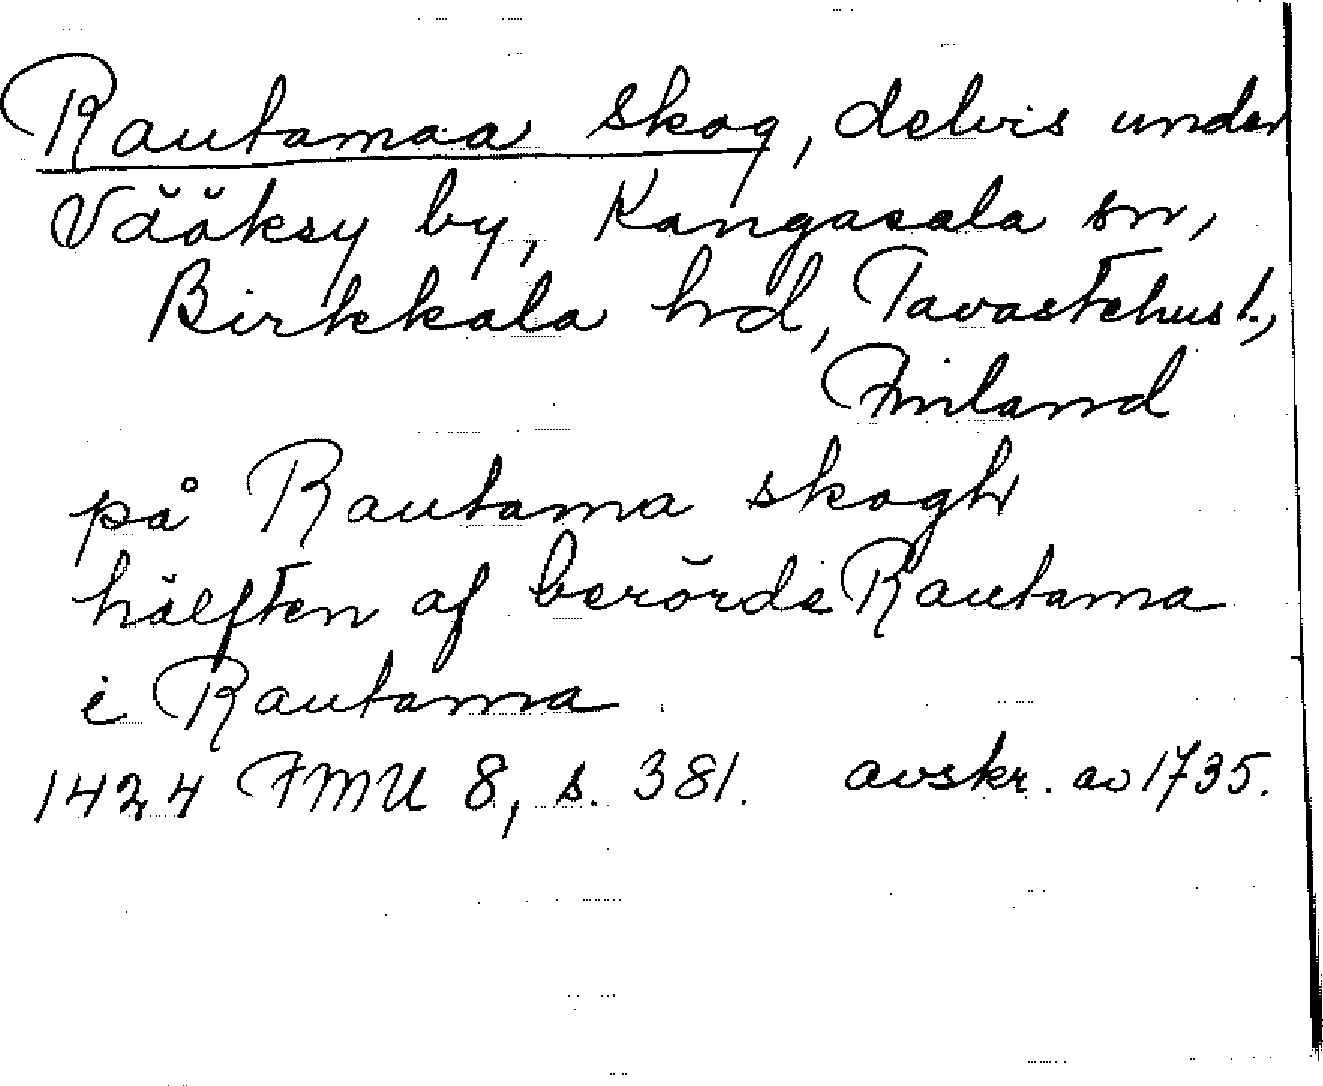 Rautamaa skog, delvis under
Vääksy by, Kangasala sn,
Birkkala hd, Tavastehus l.,
Finland
på Rautama skogh
hälften af berörde Rautama
i Rautama
1424 FMU 8, s. 381. avskr. av 1735.